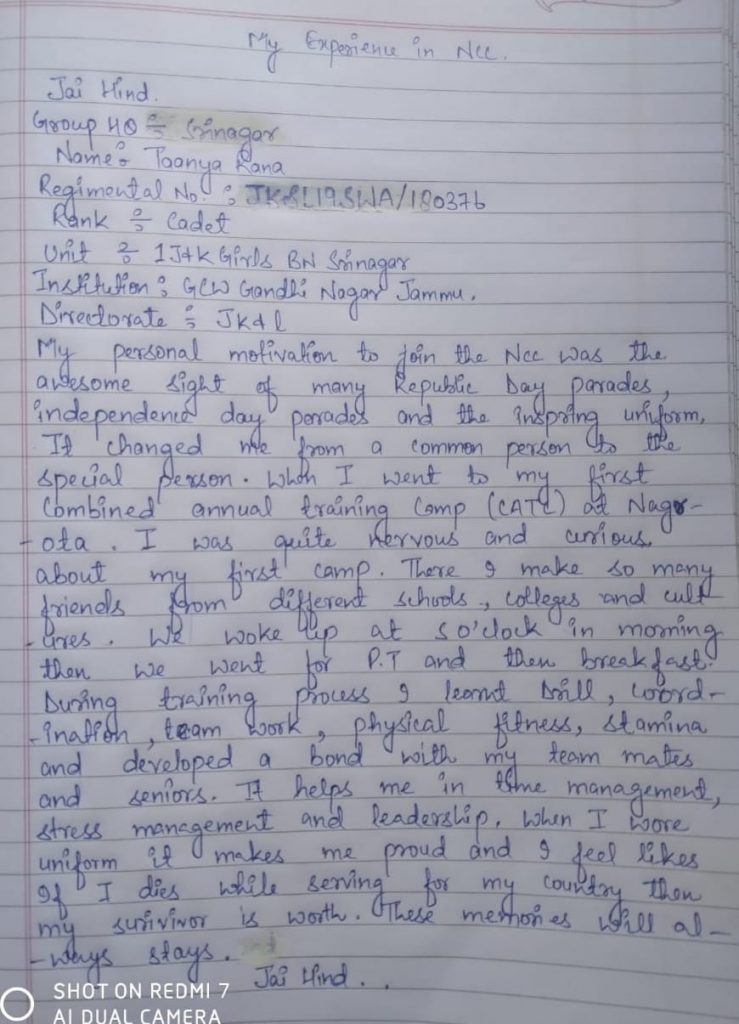 My Experience in Ncc.
Jai Hind.
Group HQ :- Srinagar
Name :- Taanya Rana
Regimental No. : JK&L19SWA/180376
Rank :- Cadet
Unit :- 1 J+K Girls BN Srinagar
Institution : GCW Gandhi Nagar Jammu.
Directorate :- JK&L
My personal motivation to join the Ncc was the
awesome sight of many Republic Day parades,
independence day parades and the inspring uniform.
It changed me from a common person to the
special person. When I went to my first
Combined annual training Camp (CATC) at Nagr-
-ota. I was quite nervous and curious
about my first camp. There I make so many
friends from different schools, colleges and cult
-ures. We woke up at 5 o'clock in morning
then we went for P.T and then breakfast.
During training process I learnt Drill, coord-
-ination, team work, physical fitness, stamina
and developed a bond with my team mates
and seniors. It helps me in time management,
stress management and leadership. When I wore
uniform it makes me proud and I feel likes
If I dies while serving for my country then
my survivor is worth. These memories will al-
-ways stays.
Jai Hind...
SHOT ON REDMI 7
AI DUAL CAMERA